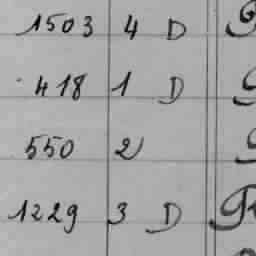 1503 4 D
418 1 D
550 2
1229 3 D